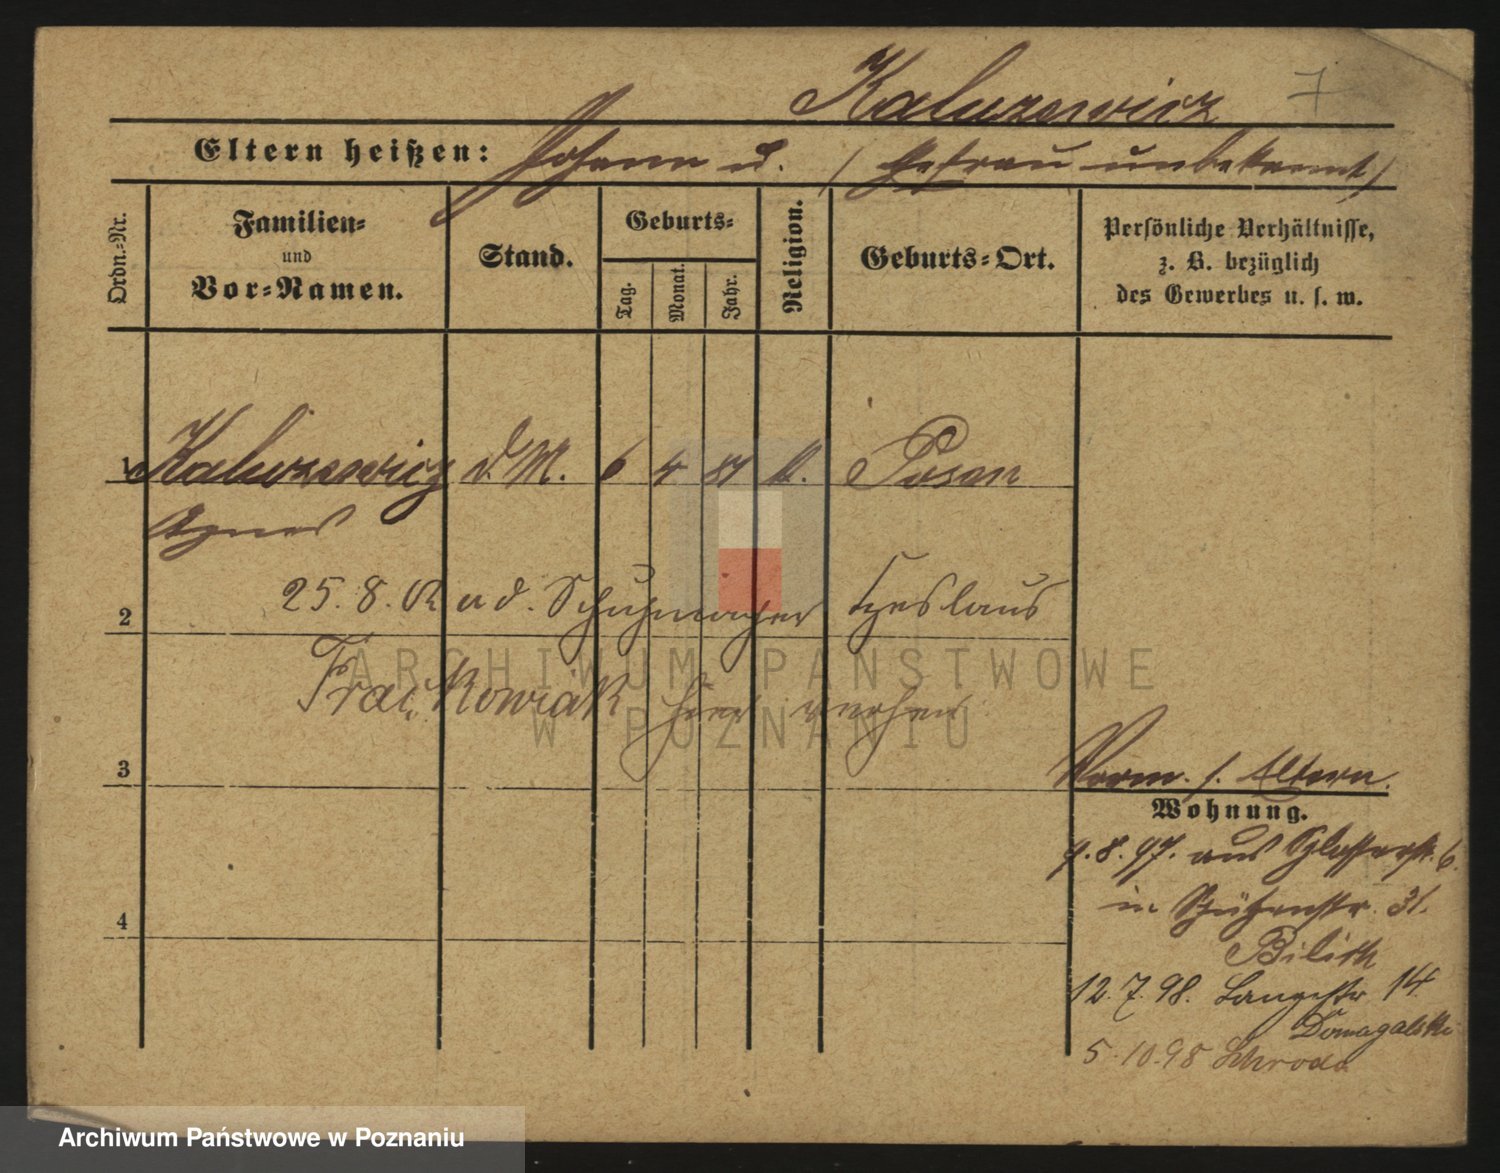 Kaluzewicz 7
Eltern heißen: Johann u. (Ehefrau unbekannt)
Ordn.-Nr.
Familien-
und
Vor-Namen.
Stand.
Geburts-
Tag.
Monat.
Jahr.
Religion.
Geburts-Ort.
Persönliche Verhältnisse,
z. B. bezüglich
des Gewerbes u. s. w.
1 Kaluzewicz d.M. 6 4 81 k. Posen
Agnes
25. 8. a d. Schuhmacher Czeslaus
2
Frąckowiak hier
ARCHIWUM PAŃSTWOWE
W POZNANIU
3
4
Vorm. s. Altern.
Wohnung.
9. 8. 97. aus Schlosserstr. 6
in Schützenstr. 31.
12. 7. 98. Langestr 14
Domagalski
5. 10. 98 Schroda
Archiwum Państwowe w Poznaniu